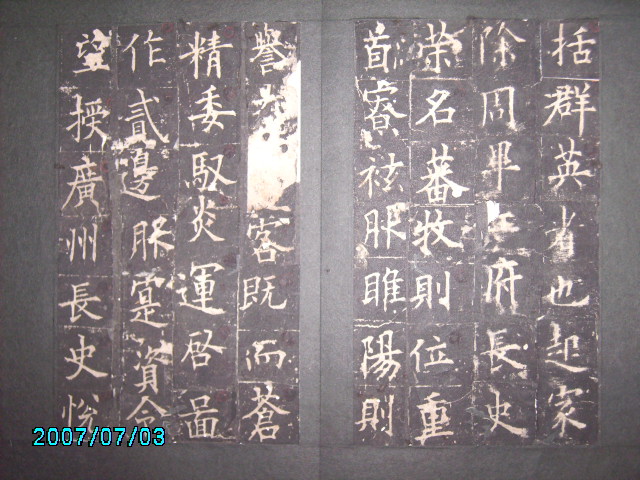 括群英者也起家
除周畢王府長史
榮名蕃牧則位重
首寮祛服睢陽則
譽 客既而蒼
精委馭炎運啓啚
作貳邊服寔資令
望授廣州長史悅
2007/07/03